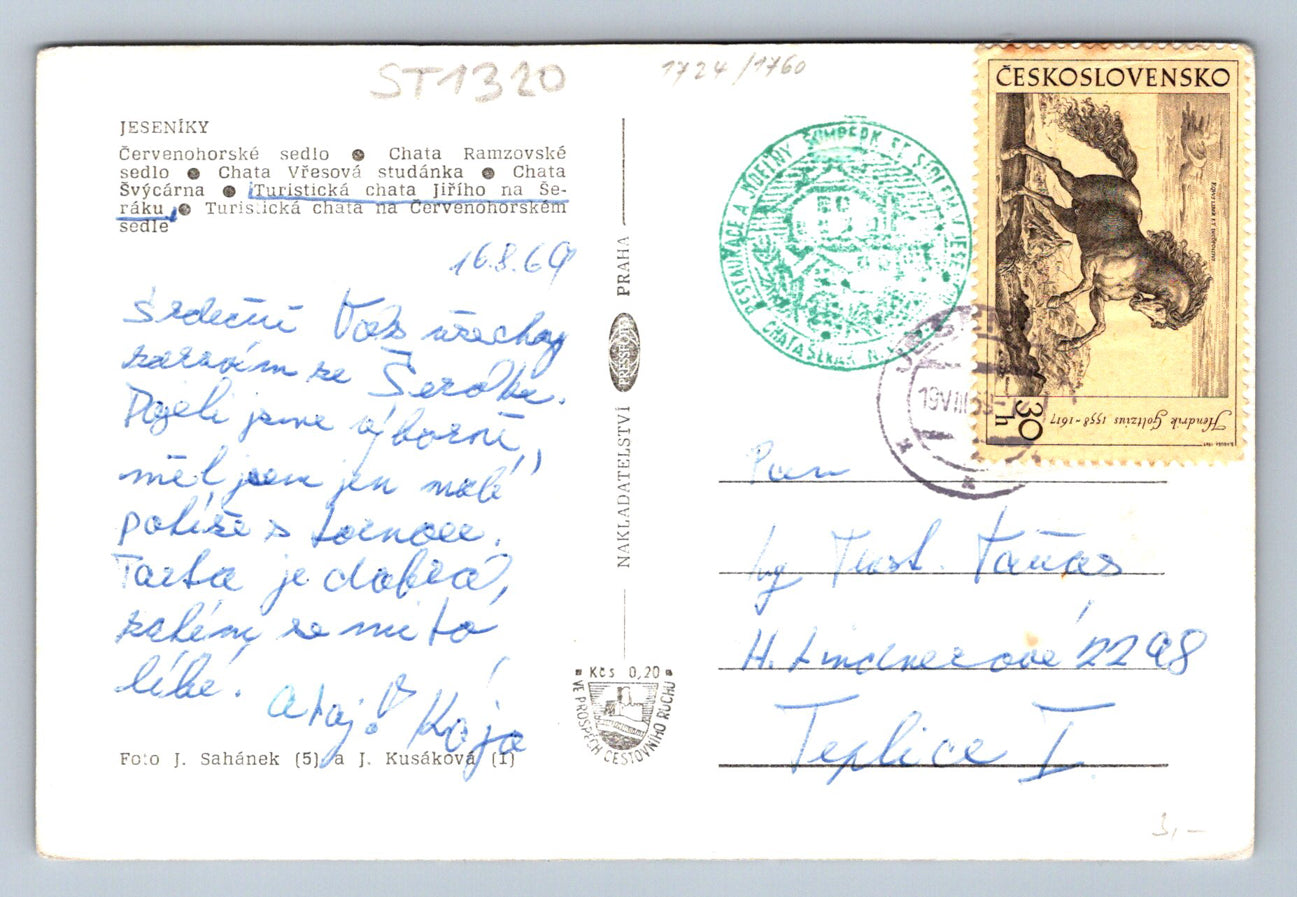 ST1320
1724/1760
JESENÍKY
Červenohorské sedlo ● Chata Ramzovské
sedlo ● Chata Vřesová studánka ● Chata
Švýcárna ● Turistická chata Jiřího na Še-
ráku ● Turistická chata na Červenohorském
sedle
16.8.69
Srdečně Vás všechny
zdravím ze Šeráku.
Dojeli jsme výborně,
měl jsem jen malé
potíže s
Parta je dobrá,
zatím se mi to
líbí.
Ahoj! Kája
Foto J. Sahánek (5) a J. Kusáková (1)
NAKLADATELSTVÍ PRESSFOTO PRAHA
Kčs 0,20
VE PROSPĚCH CESTOVNÍHO RUCHU
RESTAURACE A JÍDELNY ŠUMPERK
CHATA ŠERÁK
ČESKOSLOVENSKO
Hendrik Goltzius 1558-1617
30 h
19.VIII.69
Pan
Ing
H. Lindnerové 2298
Teplice I.
3,-